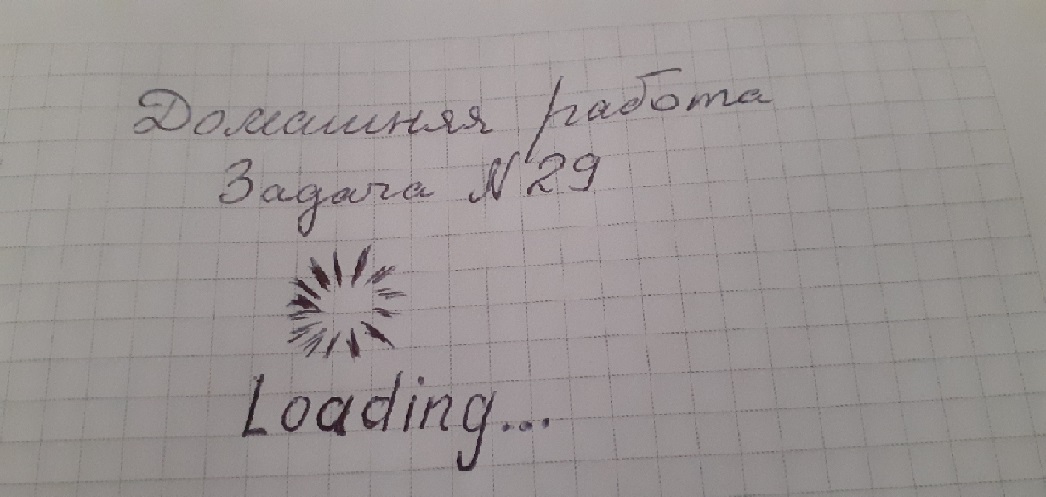 Домашняя работа
Задача №29
Loading...